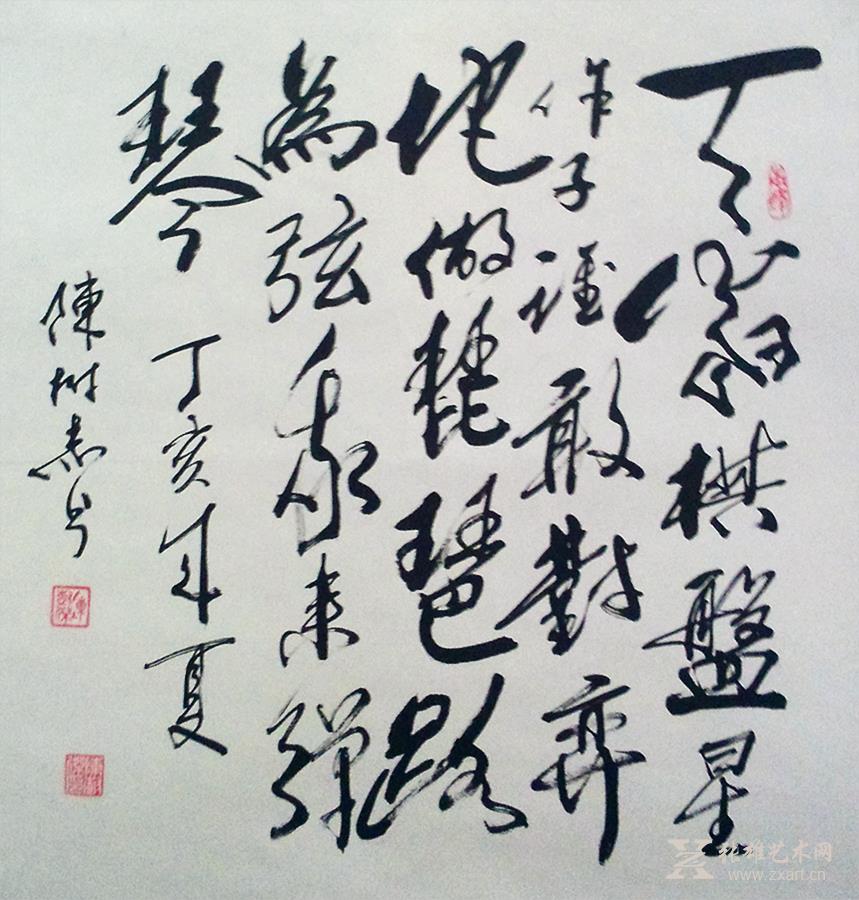 天當棋盤星
作子誰敢對弈
地做琵琶路
為弦來彈
琴 丁亥年夏
陳樹書
雄艺术网
www.zxart.cn